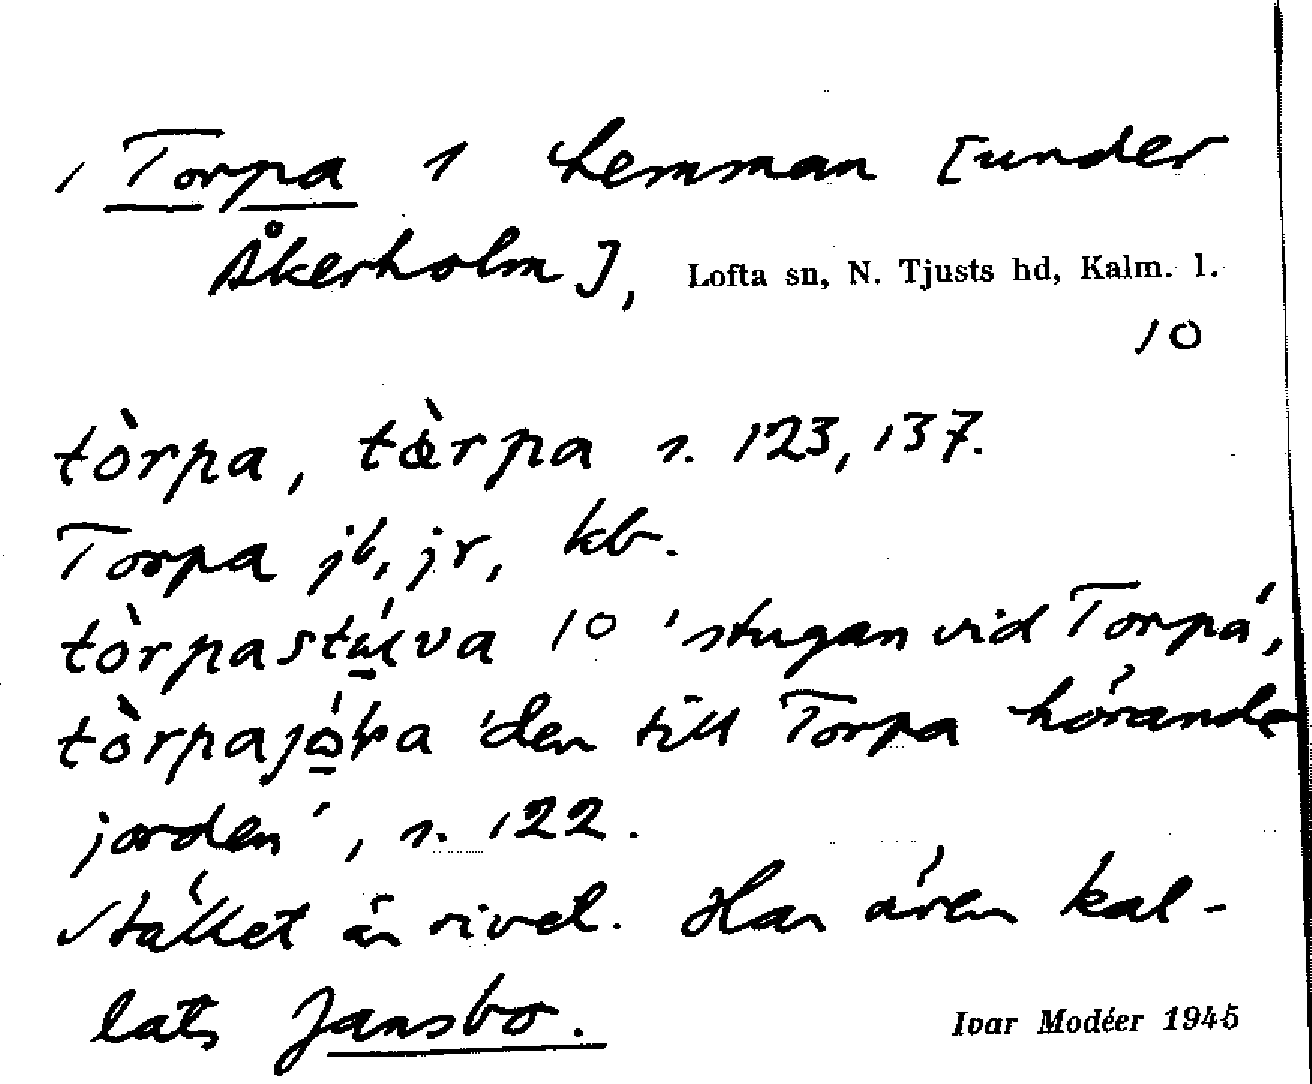 1 Torpa 1 hemman [under
Åkerholm], Lofta sn, N. Tjusts hd, Kalm. l.
10
tòrpa, tὰrpa s. 123, 137.
Torpa jb, jr, kb.
tòrpastúva 10 'stugan vid Torpa',
tòrpajóka 'den till Torpa hörande
jorden', s. 122.
Stället är rivet. Har även kal-
lats Jansbo. Ivar Modéer 1945